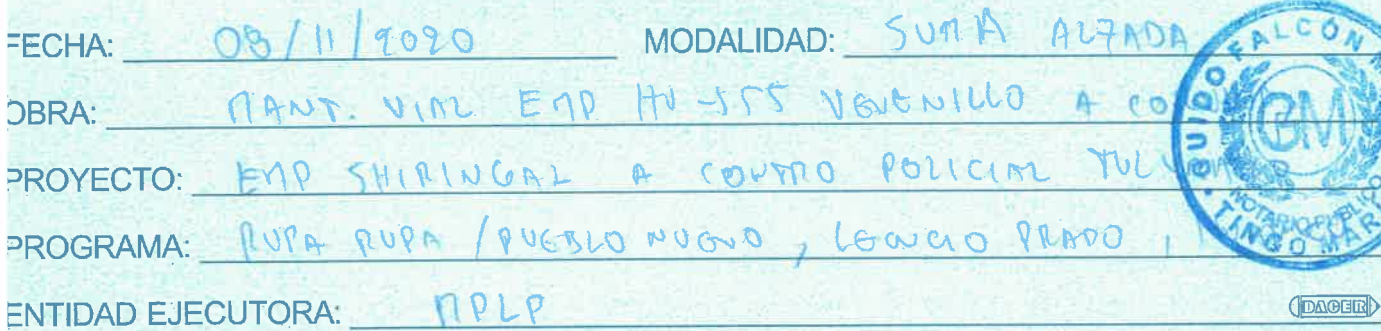 FECHA: 08/11/2020 MODALIDAD: SUMA ALZADA
OBRA: MANT. VIAL EMP HU-555 VENENILLO A CO
PROYECTO: EMP SHIRINGAL A CONTRO POLICIAL TULU
PROGRAMA: RUPA RUPA / PUEBLO NUEVO, LEONCIO PRADO,
ENTIDAD EJECUTORA: MPLP
GUIDO FALCON M
GM
NOTARIO PUBLICO
TINGO MAR
DAGER